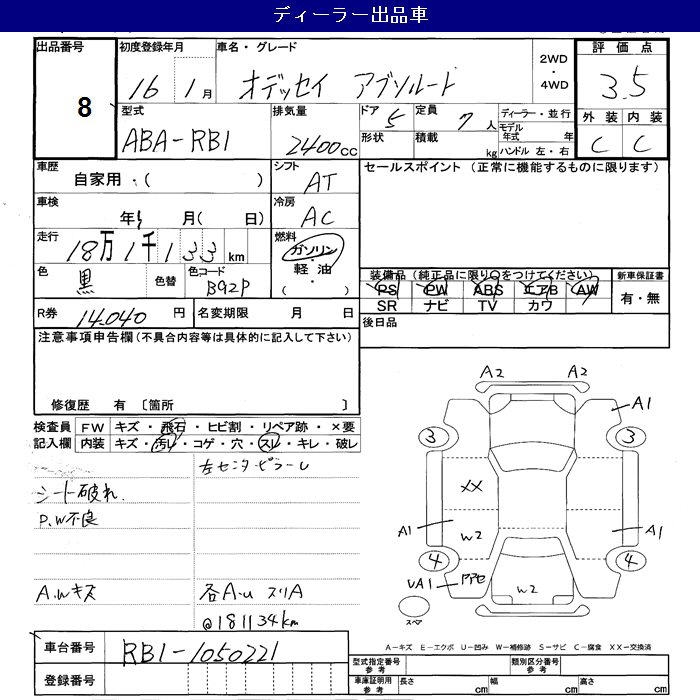 ディーラー出品車
出品番号
8
初度登録年月
16 1月
車名・グレード
オデッセイ アブソルート
2WD
・
4WD
評価点
3.5
外装 内装
C C
型式
ABA-RB1
排気量
2400cc
ドア 5
形状
定員 7人
積載 kg
ディーラー・並行
モデル年式 年
ハンドル 左・右
車歴
自家用・( )
シフト
AT
セールスポイント (正常に機能するものに限ります)
車検
年 月( 日)
冷房
AC
走行
18万1千133km
燃料
ガソリン
・
軽油
・
( )
色
黒
色替
色コード
B92P
装備品 (純正品に限り○をつけてください)
PS PW ABS エアB AW
SR ナビ TV カワ
新車保証書
有・無
R券 14,040円
名変期限 月 日
後日品
注意事項申告欄(不具合内容等は具体的に記入して下さい)
修復歴 有 〔箇所 〕
検査員記入欄
FW キズ・飛石・ヒビ割・リペア跡・×要
内装 キズ・汚れ・コゲ・穴・スレ・キレ・破レ
左センターピラーU
シート破れ.
P.W不良
A.Wキズ
各A-u スリA
@181134km
A2 A2
A1
3 3
XX
A1 W2 A1
4 4
UA1
W2
スペア
A−キズ E−エクボ U−凹み W−補修跡 S−サビ C−腐食 XX−交換済
車台番号
RB1-1050221
登録番号
型式指定番号 参考
類別区分番号 参考
車庫証明用 参考
長さ cm
幅 cm
高さ cm